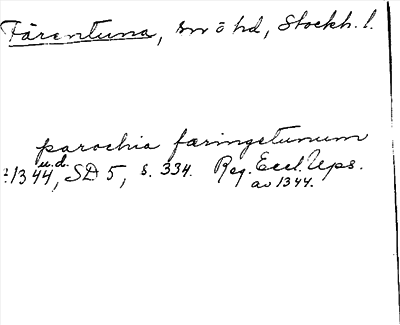 Färentuna, sn ö hd, Stockh. l.
parochia færingetunum
u.d.
?1344, SD 5, s. 334. Reg. Eccl. Ups.
av 1344.